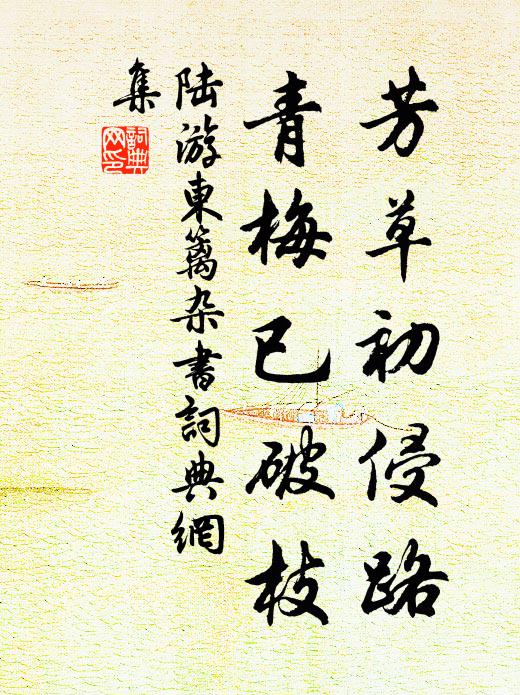 芳草初侵路
青梅已破枝
陸游東籬杂書詞典網
集
詞典
网印